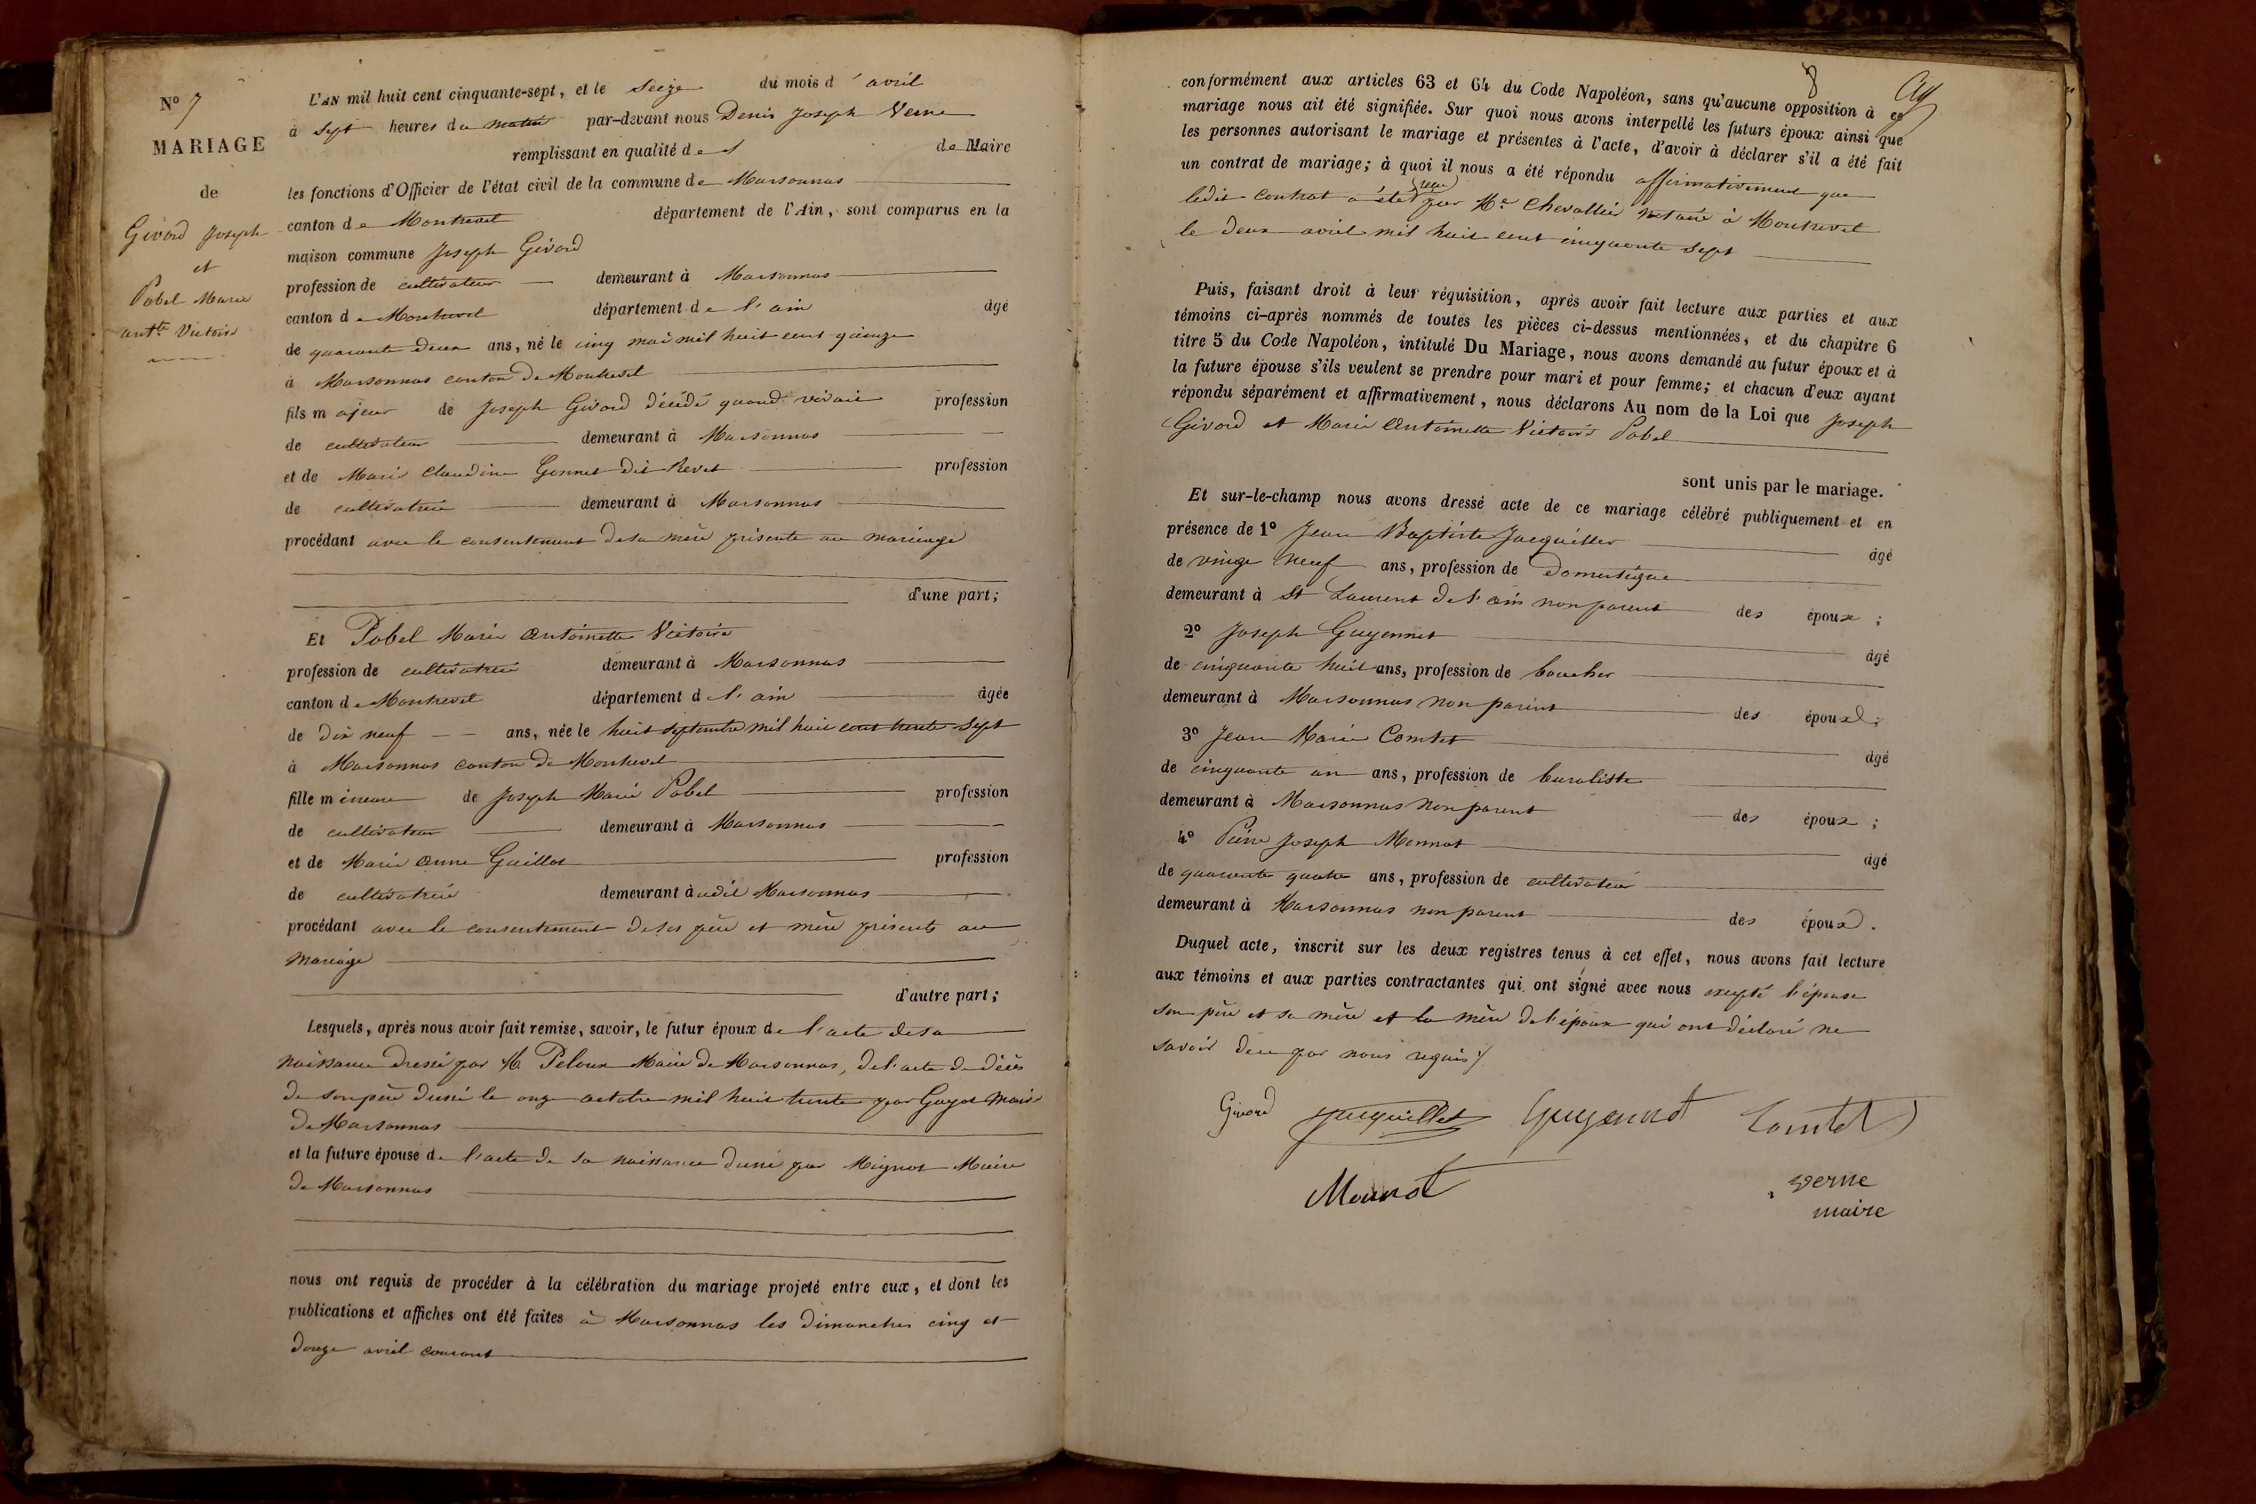 N° 7
MARIAGE
de
Givord Joseph
et
Pobel Marie
antte Victoire
L'AN mil huit cent cinquante-sept, et le Seize du mois d'avril
à Sept heures du matin par-devant nous Denis Joseph Verne
remplissant en qualité de de Maire
les fonctions d'Officier de l'état civil de la commune de Marsonnas
canton de Montrevel département de l'Ain, sont comparus en la
maison commune Joseph Givord
profession de cultivateur demeurant à Marsonnas
canton de Montrevel département de l'ain âgé
de quarante deux ans, né le cinq mai mil huit cent quinze
à Marsonnas canton de Montrevel
fils majeur de Joseph Givord décédé quand vivait profession
de cultivateur demeurant à Marsonnas
et de Marie Claudine Gonnet dit Revet profession
de cultivatrice demeurant à Marsonnas
procédant avec le consentement de sa mère présente au mariage
d'une part;
Et Pobel Marie Antoinette Victoire
profession de cultivatrice demeurant à Marsonnas
canton de Montrevel département de l'ain âgée
de dix neuf ans, née le huit septembre mil huit cent trente sept
à Marsonnas canton de Montrevel
fille mineure de Joseph Marie Pobel profession
de cultivateur demeurant à Marsonnas
et de Marie Anne Guillot profession
de cultivatrice demeurant à udit Marsonnas
procédant avec le consentement de ses père et mère présents au
mariage
d'autre part;
Lesquels, après nous avoir fait remise, savoir, le futur époux de l'acte de sa
naissance dressé par M. Peloux Maire de Marsonnas, de l'acte de décès
de son père dressé le onze octobre mil huit trente par Guyot Maire
de Marsonnas
et la future épouse de l'acte de sa naissance dressé par Mignot Maire
de Marsonnas
nous ont requis de procéder à la célébration du mariage projeté entre eux, et dont les
publications et affiches ont été faites à Marsonnas les dimanches cinq et
douze avril courant
8
conformément aux articles 63 et 64 du Code Napoléon, sans qu'aucune opposition à ce
mariage nous ait été signifiée. Sur quoi nous avons interpellé les futurs époux ainsi que
les personnes autorisant le mariage et présentes à l'acte, d'avoir à déclarer s'il a été fait
un contrat de mariage; à quoi il nous a été répondu affirmativement que
ledit contrat a été reçu par Me Chevallier notaire à Montrevel
le deux avril mil huit cent cinquante sept
Puis, faisant droit à leur réquisition, après avoir fait lecture aux parties et aux
témoins ci-après nommés de toutes les pièces ci-dessus mentionnées, et du chapitre 6
titre 5 du Code Napoléon, intitulé Du Mariage, nous avons demandé au futur époux et à
la future épouse s'ils veulent se prendre pour mari et pour femme; et chacun d'eux ayant
répondu séparément et affirmativement, nous déclarons Au nom de la Loi que Joseph
Givord et Marie Antoinette Victoire Pobel
sont unis par le mariage.
Et sur-le-champ nous avons dressé acte de ce mariage célébré publiquement et en
présence de 1° Jean Baptiste Jacquillet âgé
de vingt neuf ans, profession de domestique
demeurant à St Laurent de l'ain non parent des époux;
2° Joseph Guyennet âgé
de cinquante huit ans, profession de boucher
demeurant à Marsonnas non parent des époux;
3° Jean Marie Comtet âgé
de cinquante un ans, profession de buraliste
demeurant à Marsonnas non parent des époux;
4° Pierre Joseph Monnot âgé
de quarante quatre ans, profession de cultivateur
demeurant à Marsonnas non parent des époux.
Duquel acte, inscrit sur les deux registres tenus à cet effet, nous avons fait lecture
aux témoins et aux parties contractantes qui ont signé avec nous excepté l'épouse
son père et sa mère et la mère de l'époux qui ont déclaré ne
savoir de ce par nous requis
Givord Jacquillet Guyennot Comtet
Monnot
verne
maire